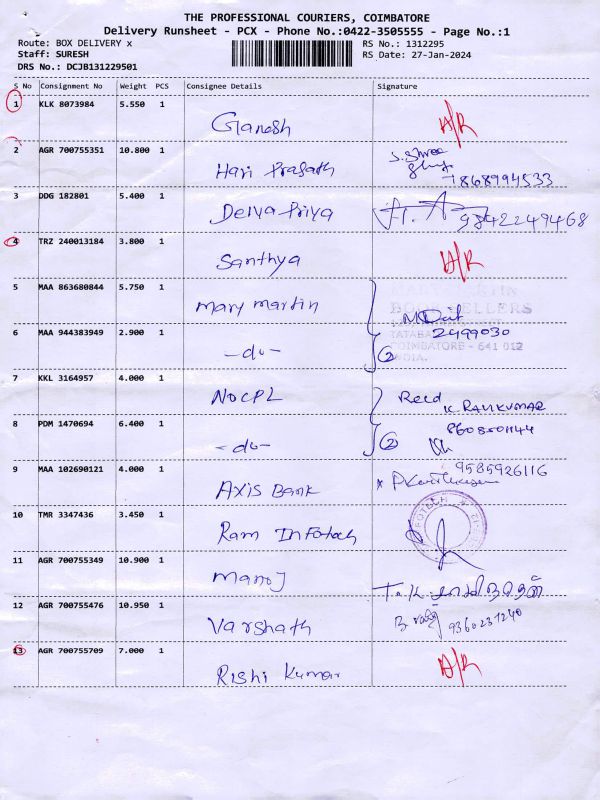 THE PROFESSIONAL COURIERS, COIMBATORE
Delivery Runsheet - PCX - Phone No.:0422-3505555 - Page No.:1
Route: BOX DELIVERY x RS No.: 1312295
Staff: SURESH RS Date: 27-Jan-2024
DRS No.: DCJB131229501
S No Consignment No Weight PCS Consignee Details Signature
1 KLK 8073984 5.550 1
Ganesh A/R
2 AGR 700755351 10.800 1 S. Shree
Hari Prasath 7868994533
3 DDG 182801 5.400 1
Deiva Priya 9842249468
4 TRZ 240013184 3.800 1
Santhya A/R
5 MAA 863680844 5.750 1
Mary Martin
BOOKSELLERS
6 MAA 944383949 2.900 1 2499030
-do- 2 COIMBATORE - 641 012
INDIA.
7 KKL 3164957 4.000 1
NOCPL Recd
K. RAVIKUMAR
8 PDM 1470694 6.400 1
-do- 2
9 MAA 102690121 4.000 1 9585926116
Axis Bank
10 TMR 3347436 3.450 1
Ram Infotech
11 AGR 700755349 10.900 1
Manoj
12 AGR 700755476 10.950 1
Varshath 9360231240
13 AGR 700755709 7.000 1
Rishi Kumar A/R